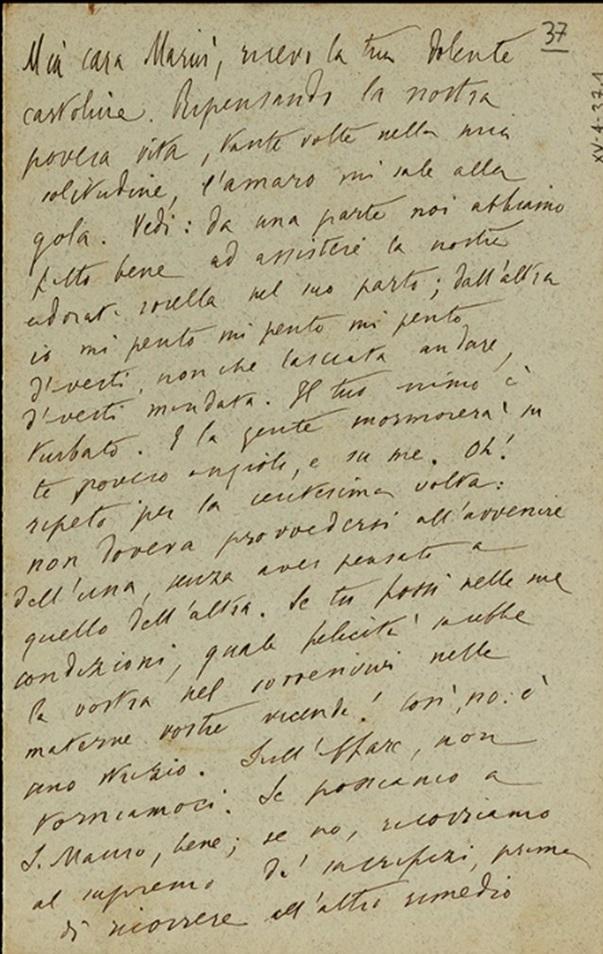 37
XV.4.37.1
Mia cara Mariù, ricevo la tua dolente
cartolina. Ripensando la nostra
povera vita, tante volte nella mia
solitudine, l'amaro mi sale alla
gola. Vedi: da una parte noi abbiamo
fatto bene ad assistere la nostra
adorata sorella nel suo parto; dall'altra
io mi pento mi pento mi pento
d'averti, non che lasciata andare,
d'averti mandata. Il tuo animo è
turbato. E la gente mormorerà su
te povero angiolo, e su me. Oh!
ripeto per la centesima volta:
non doveva provvedersi all'avvenire
dell'una, senza aver pensato a
quello dell'altra. Se tu fossi nelle sue
condizioni, quale felicità sarebbe
la vostra nel sovvenirvi nelle
materne vostre vicende! Così, no: è
uno strazio. Sull'affare, non
torniamoci. Se possiamo a
S. Mauro, bene; se no, ricorriamo
al supremo de' sacrifizi, prima
di ricorrere all'altro rimedio